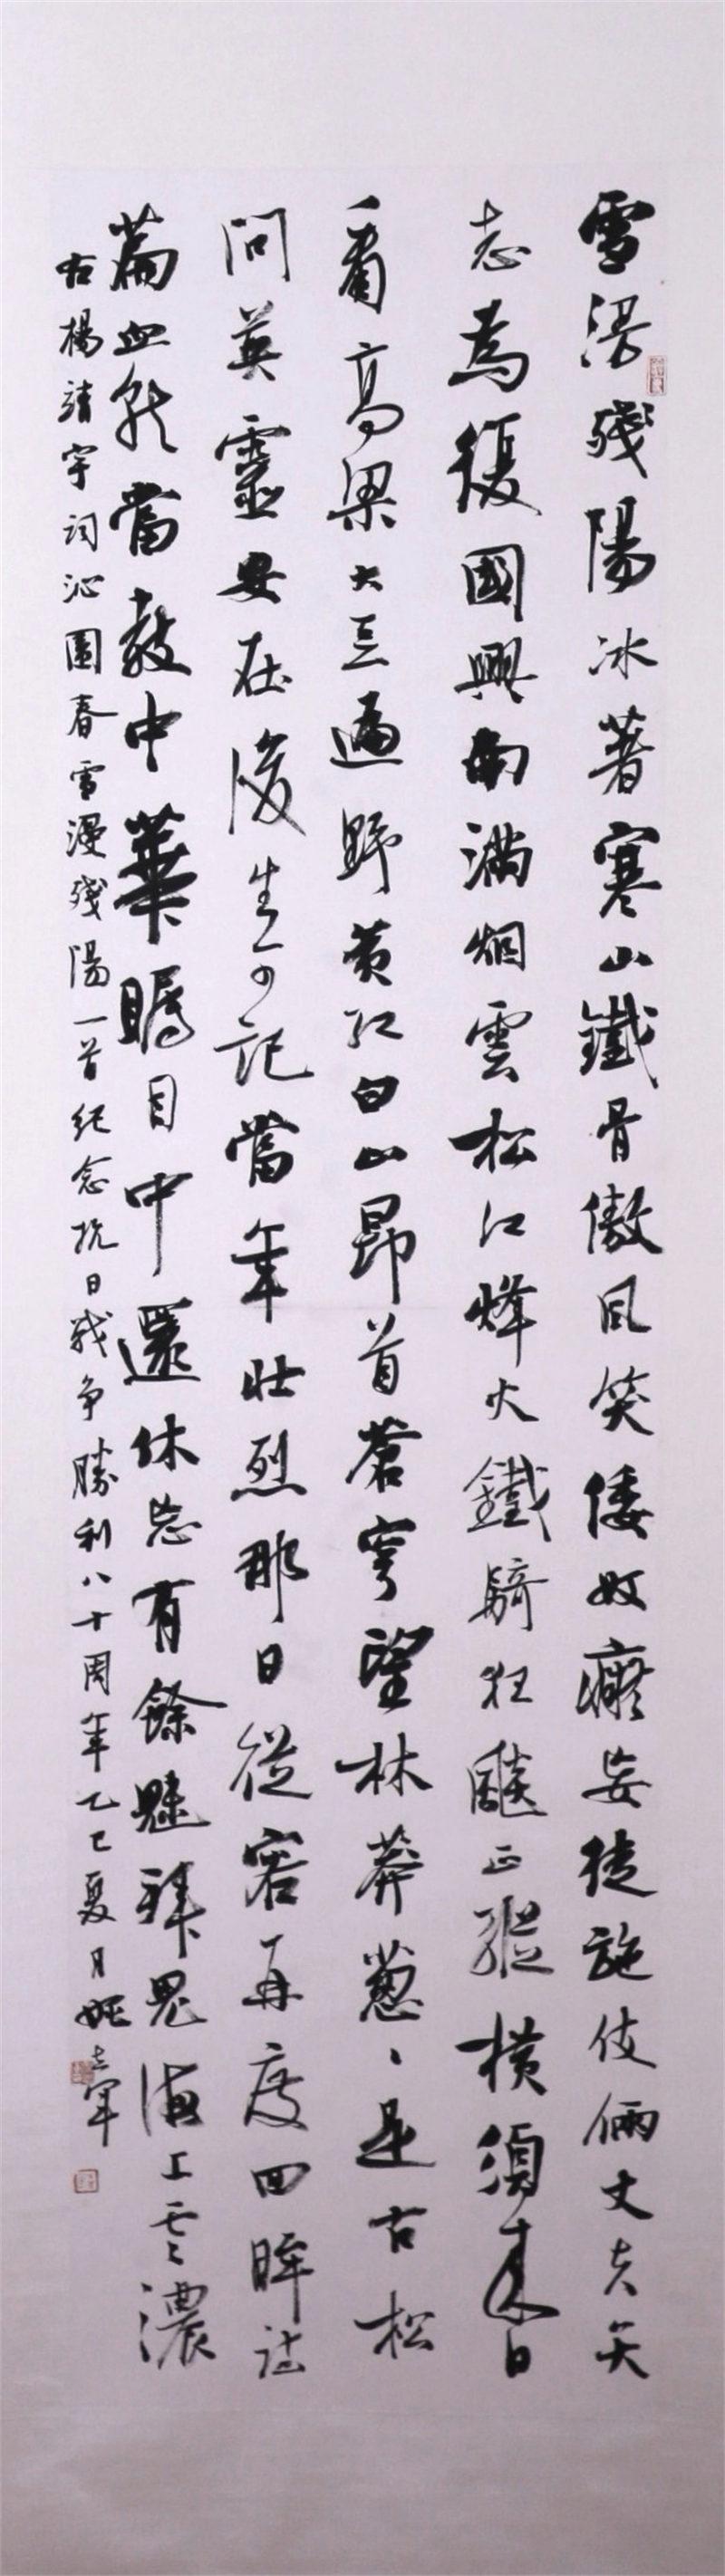 雪漫殘陽冰著寒山鐵骨傲風笑倭奴癡妄徒施伎倆丈夫矢
志為復國興南滿烟雲松江烽火鐵騎狂飈正縱橫須來日
看高粱大豆遍野黃紅白山昂首蒼穹望林莽蔥、是古松
問英靈安在後生可記當年壯烈那日從容再度回眸詩
篇血熱當教中華矚目中還休忘有餘魅拜鬼海上雲濃
右楊靖宇詞沁園春雪漫殘陽一首紀念抗日戰爭勝利八十周年乙巳夏月